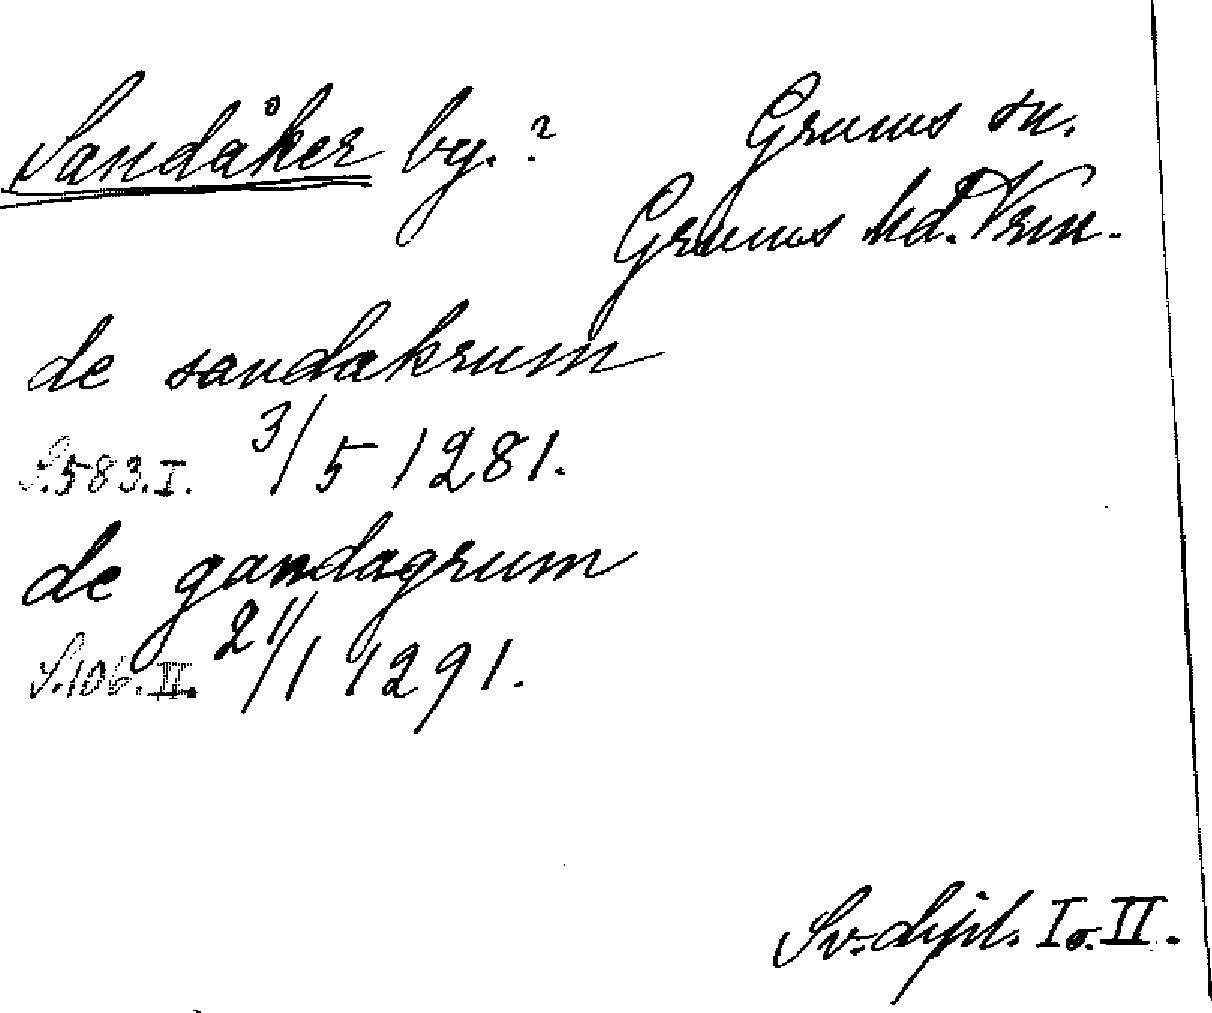 Sandåker by.? Grums sn.
Grums hd. Vrm.
de sandakrum
S.583.I. 3/5 1281.
de gandagrum
S.106.II. 21/1 1291.
Sv. dipl. I o. II.